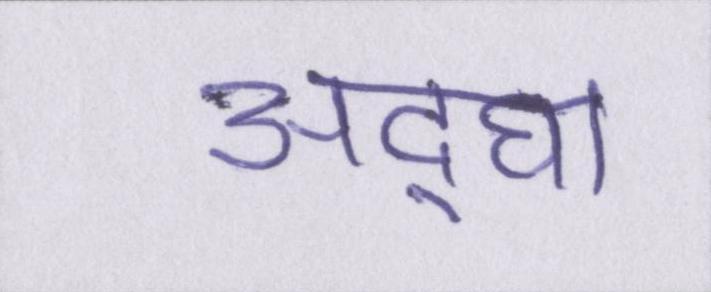 अद्घा